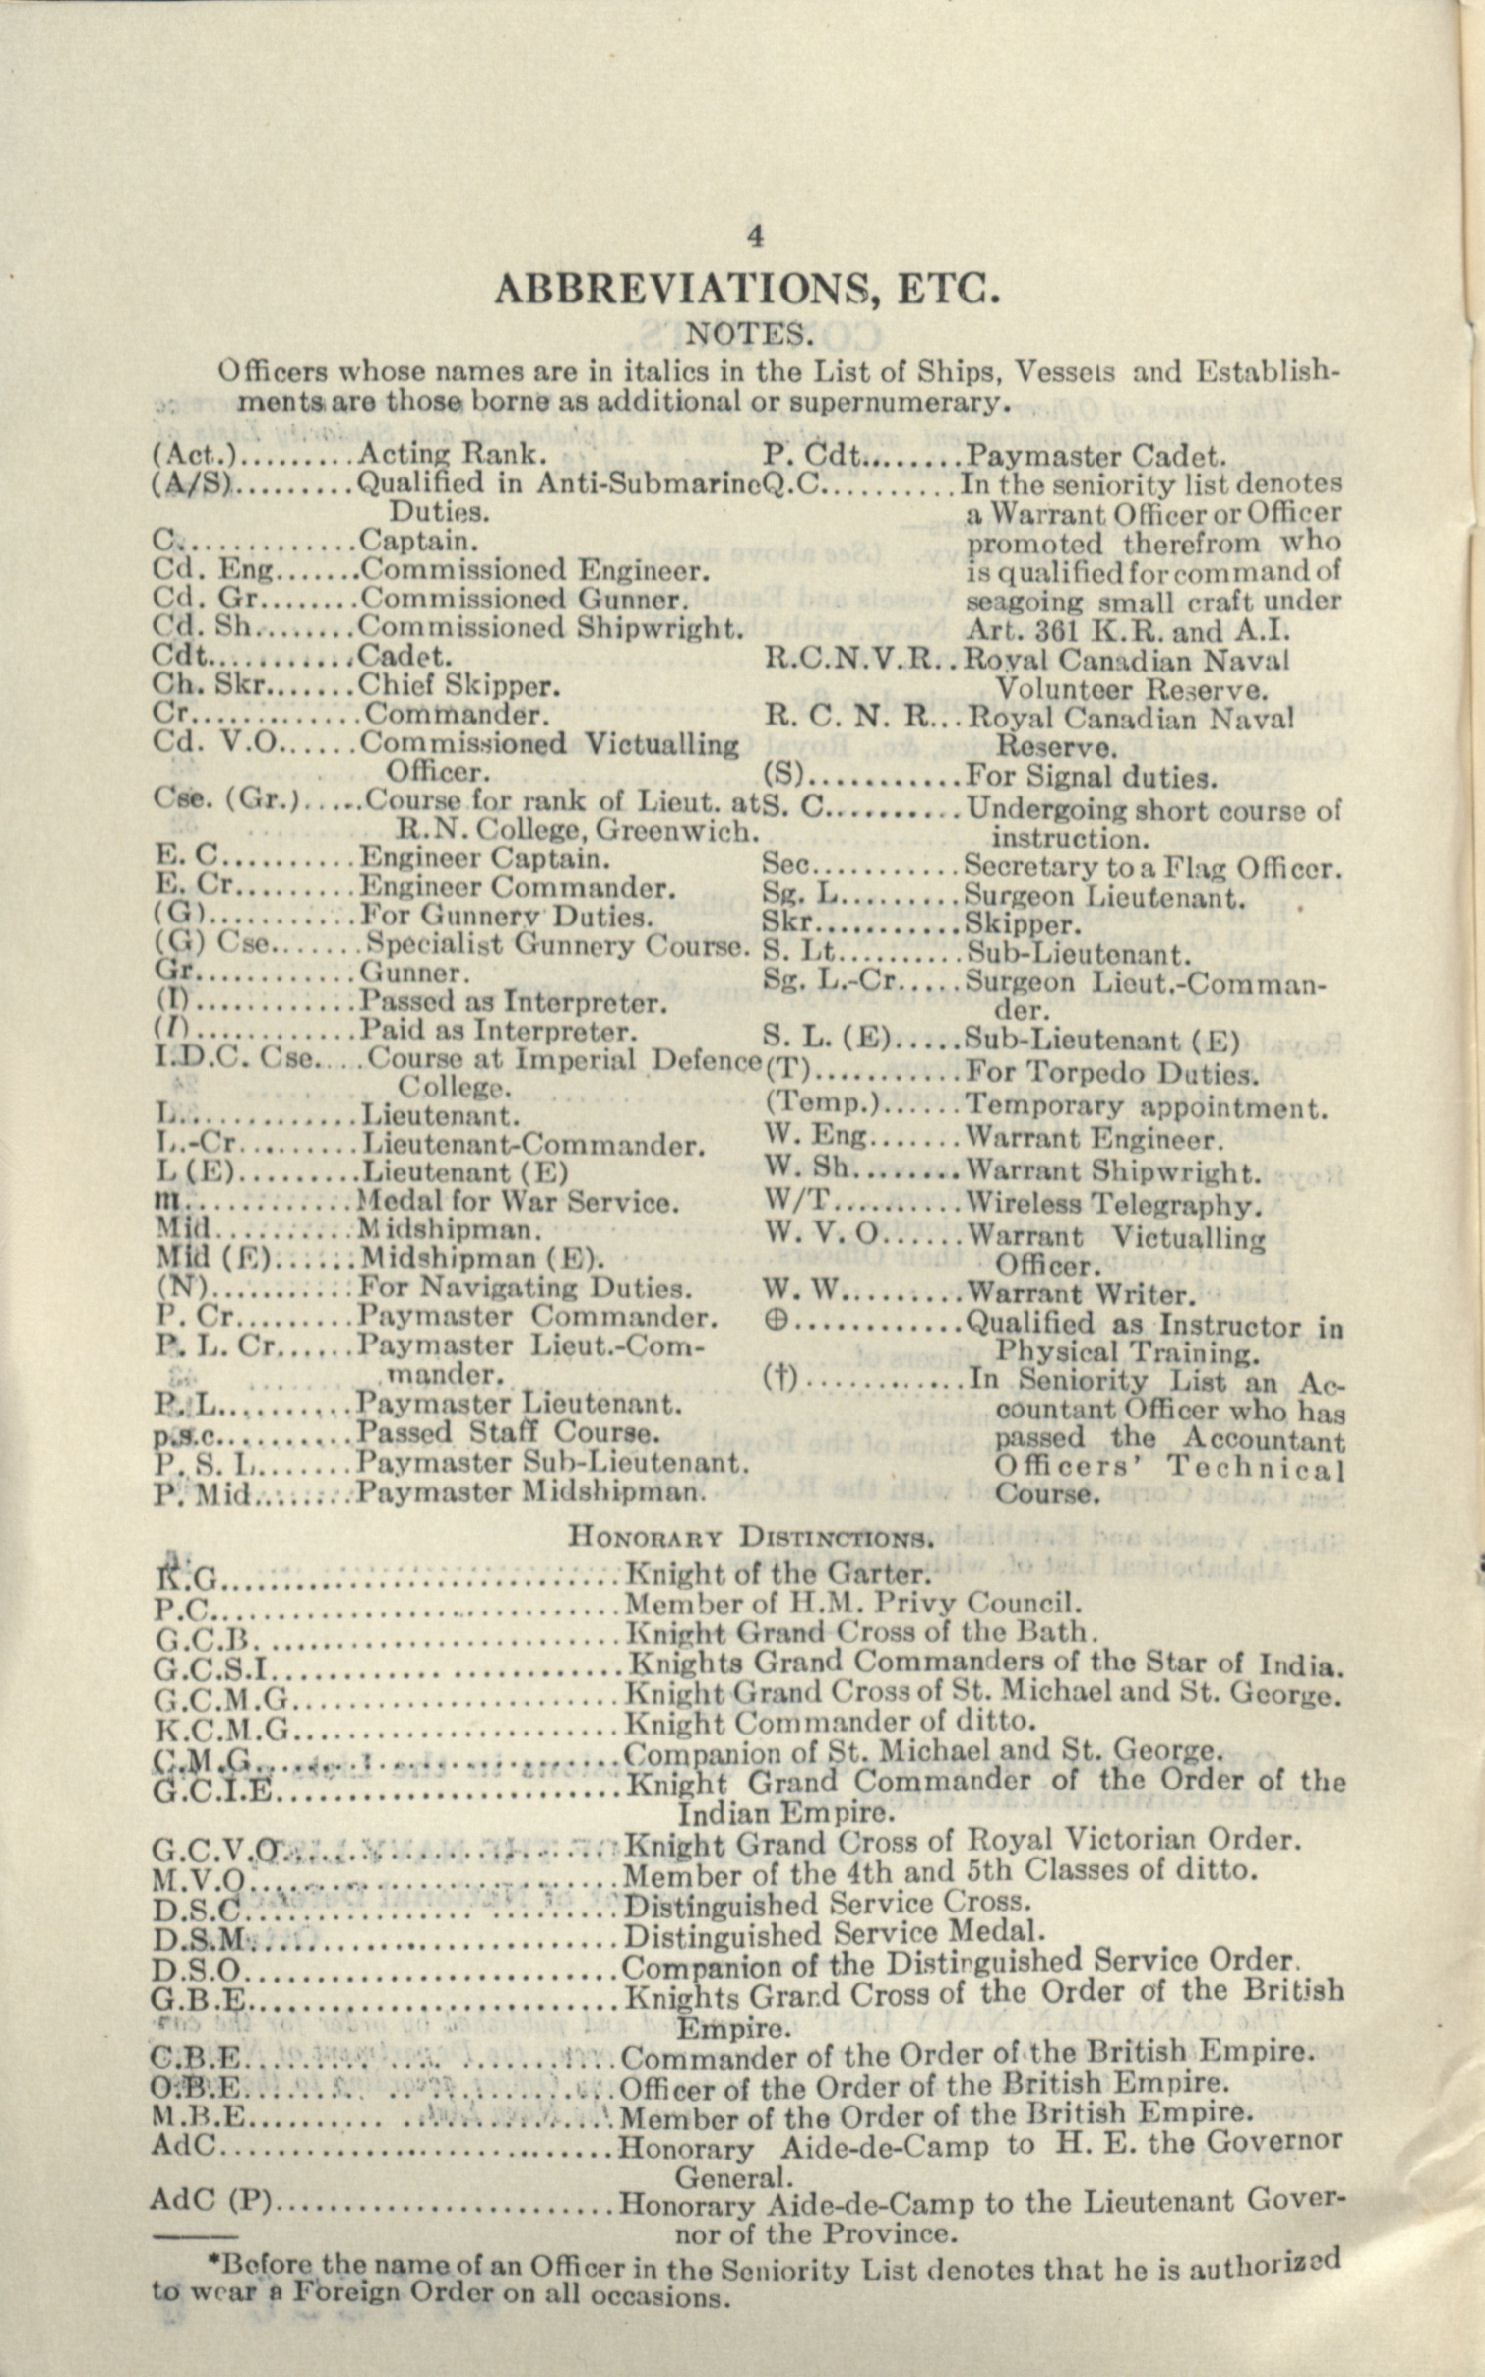 4
ABBREVIATIONS, ETC.
NOTES.
Officers whose names are in italics in the List of Ships, Vessels and Establish-
ments are those borne as additional or supernumerary.
(Act.).........Acting Rank.
(A/S)..........Qualified in Anti-Submarine
Duties.
C..............Captain.
Cd. Eng.......Commissioned Engineer.
Cd. Gr........Commissioned Gunner.
Cd. Sh........Commissioned Shipwright.
Cdt...........Cadet.
Ch. Skr.......Chief Skipper.
Cr.............Commander.
Cd. V.O......Commissioned Victualling
Officer.
Cse. (Gr.).....Course for rank of Lieut. at
R.N. College, Greenwich.
E. C..........Engineer Captain.
E. Cr.........Engineer Commander.
(G)...........For Gunnery Duties.
(G) Cse.......Specialist Gunnery Course.
Gr............Gunner.
(I)............Passed as Interpreter.
(I)............Paid as Interpreter.
I.D.C. Cse....Course at Imperial Defence
College.
L.............Lieutenant.
L.-Cr.........Lieutenant-Commander.
L (E).........Lieutenant (E)
m............Medal for War Service.
Mid..........Midshipman.
Mid (E)......Midshipman (E).
(N)...........For Navigating Duties.
P. Cr.........Paymaster Commander.
P. L. Cr......Paymaster Lieut.-Com-
mander.
P. L..........Paymaster Lieutenant.
p.s.c..........Passed Staff Course.
P. S. L.......Paymaster Sub-Lieutenant.
P. Mid........Paymaster Midshipman.
P. Cdt........Paymaster Cadet.
Q.C..........In the seniority list denotes
a Warrant Officer or Officer
promoted therefrom who
is qualified for command of
seagoing small craft under
Art. 361 K.R. and A.I.
R.C.N.V.R..Royal Canadian Naval
Volunteer Reserve.
R. C. N. R...Royal Canadian Naval
Reserve.
(S)...........For Signal duties.
S. C..........Undergoing short course of
instruction.
Sec...........Secretary to a Flag Officer.
Sg. L.........Surgeon Lieutenant.
Skr...........Skipper.
S. Lt.........Sub-Lieutenant.
Sg. L.-Cr.....Surgeon Lieut.-Comman-
der.
S. L. (E).....Sub-Lieutenant (E)
(T)...........For Torpedo Duties.
(Temp.)......Temporary appointment.
W. Eng.......Warrant Engineer.
W. Sh........Warrant Shipwright.
W/T..........Wireless Telegraphy.
W. V. O......Warrant Victualling
Officer.
W. W.........Warrant Writer.
⊕............Qualified as Instructor in
Physical Training.
(†)............In Seniority List an Ac-
countant Officer who has
passed the Accountant
Officers' Technical
Course.
HONORARY DISTINCTIONS.
K.G............................Knight of the Garter.
P.C............................Member of H.M. Privy Council.
G.C.B..........................Knight Grand Cross of the Bath.
G.C.S.I........................Knights Grand Commanders of the Star of India.
G.C.M.G.......................Knight Grand Cross of St. Michael and St. George.
K.C.M.G.......................Knight Commander of ditto.
C.M.G.........................Companion of St. Michael and St. George.
G.C.I.E........................Knight Grand Commander of the Order of the
Indian Empire.
G.C.V.O.......................Knight Grand Cross of Royal Victorian Order.
M.V.O.........................Member of the 4th and 5th Classes of ditto.
D.S.C..........................Distinguished Service Cross.
D.S.M..........................Distinguished Service Medal.
D.S.O..........................Companion of the Distinguished Service Order.
G.B.E..........................Knights Grand Cross of the Order of the British
Empire.
C.B.E..........................Commander of the Order of the British Empire.
O.B.E..........................Officer of the Order of the British Empire.
M.B.E..........................Member of the Order of the British Empire.
AdC...........................Honorary Aide-de-Camp to H. E. the Governor
General.
AdC (P)........................Honorary Aide-de-Camp to the Lieutenant Gover-
nor of the Province.
*Before the name of an Officer in the Seniority List denotes that he is authorized
to wear a Foreign Order on all occasions.